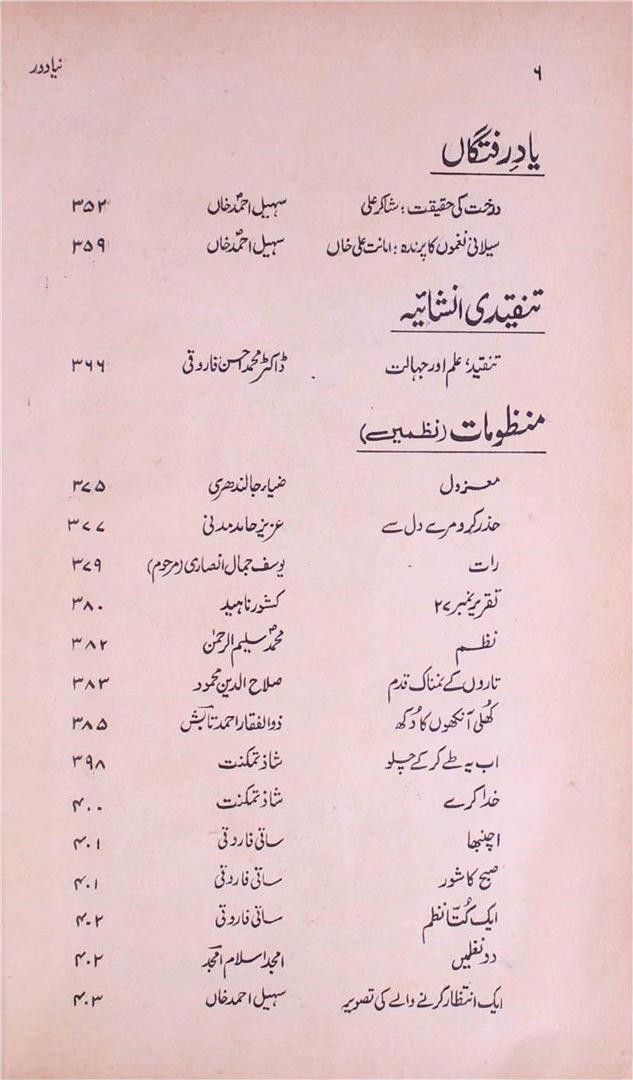 ۶ نیادور
یادِ رفتگاں
درخت کی حقیقت؛ شاکر علی سہیل احمد خاں ۳۵۲
سیلانی نغموں کا پرندہ؛ امانت علی خاں سہیل احمد خاں ۳۵۹
تنقیدی انشائیہ
تنقید، علم اور جہالت ڈاکٹر محمد احسن فاروقی ۳۶۶
منظومات (نظمیں)
معزول ضیاء جالندھری ۳۷۵
حذر کرو مرے دل سے عزیز حامد مدنی ۳۷۷
رات یوسف جمال انصاری (مرحوم) ۳۷۹
تقریر نمبر ۲۷ کشور ناہید ۳۸۰
نظم محمد سلیم الرحمٰن ۳۸۲
تاروں کے نمناک قدم صلاح الدین محمود ۳۸۳
کھلی آنکھوں کا دُکھ ذوالفقار احمد تابش ۳۸۵
اب یہ طے کر کے چلو شاذ تمکنت ۳۹۸
خدا کرے شاذ تمکنت ۴۰۰
اچنبھا ساقی فاروقی ۴۰۱
صبح کا شور ساقی فاروقی ۴۰۱
ایک کُتّا نظم ساقی فاروقی ۴۰۲
دو نظمیں امجد اسلام امجد ۴۰۲
ایک انتظار کرنے والے کی تصویر سہیل احمد خاں ۴۰۳